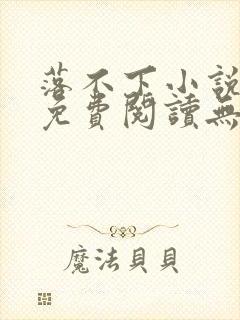 落不下小說
免費閱讀無
魔法貝貝